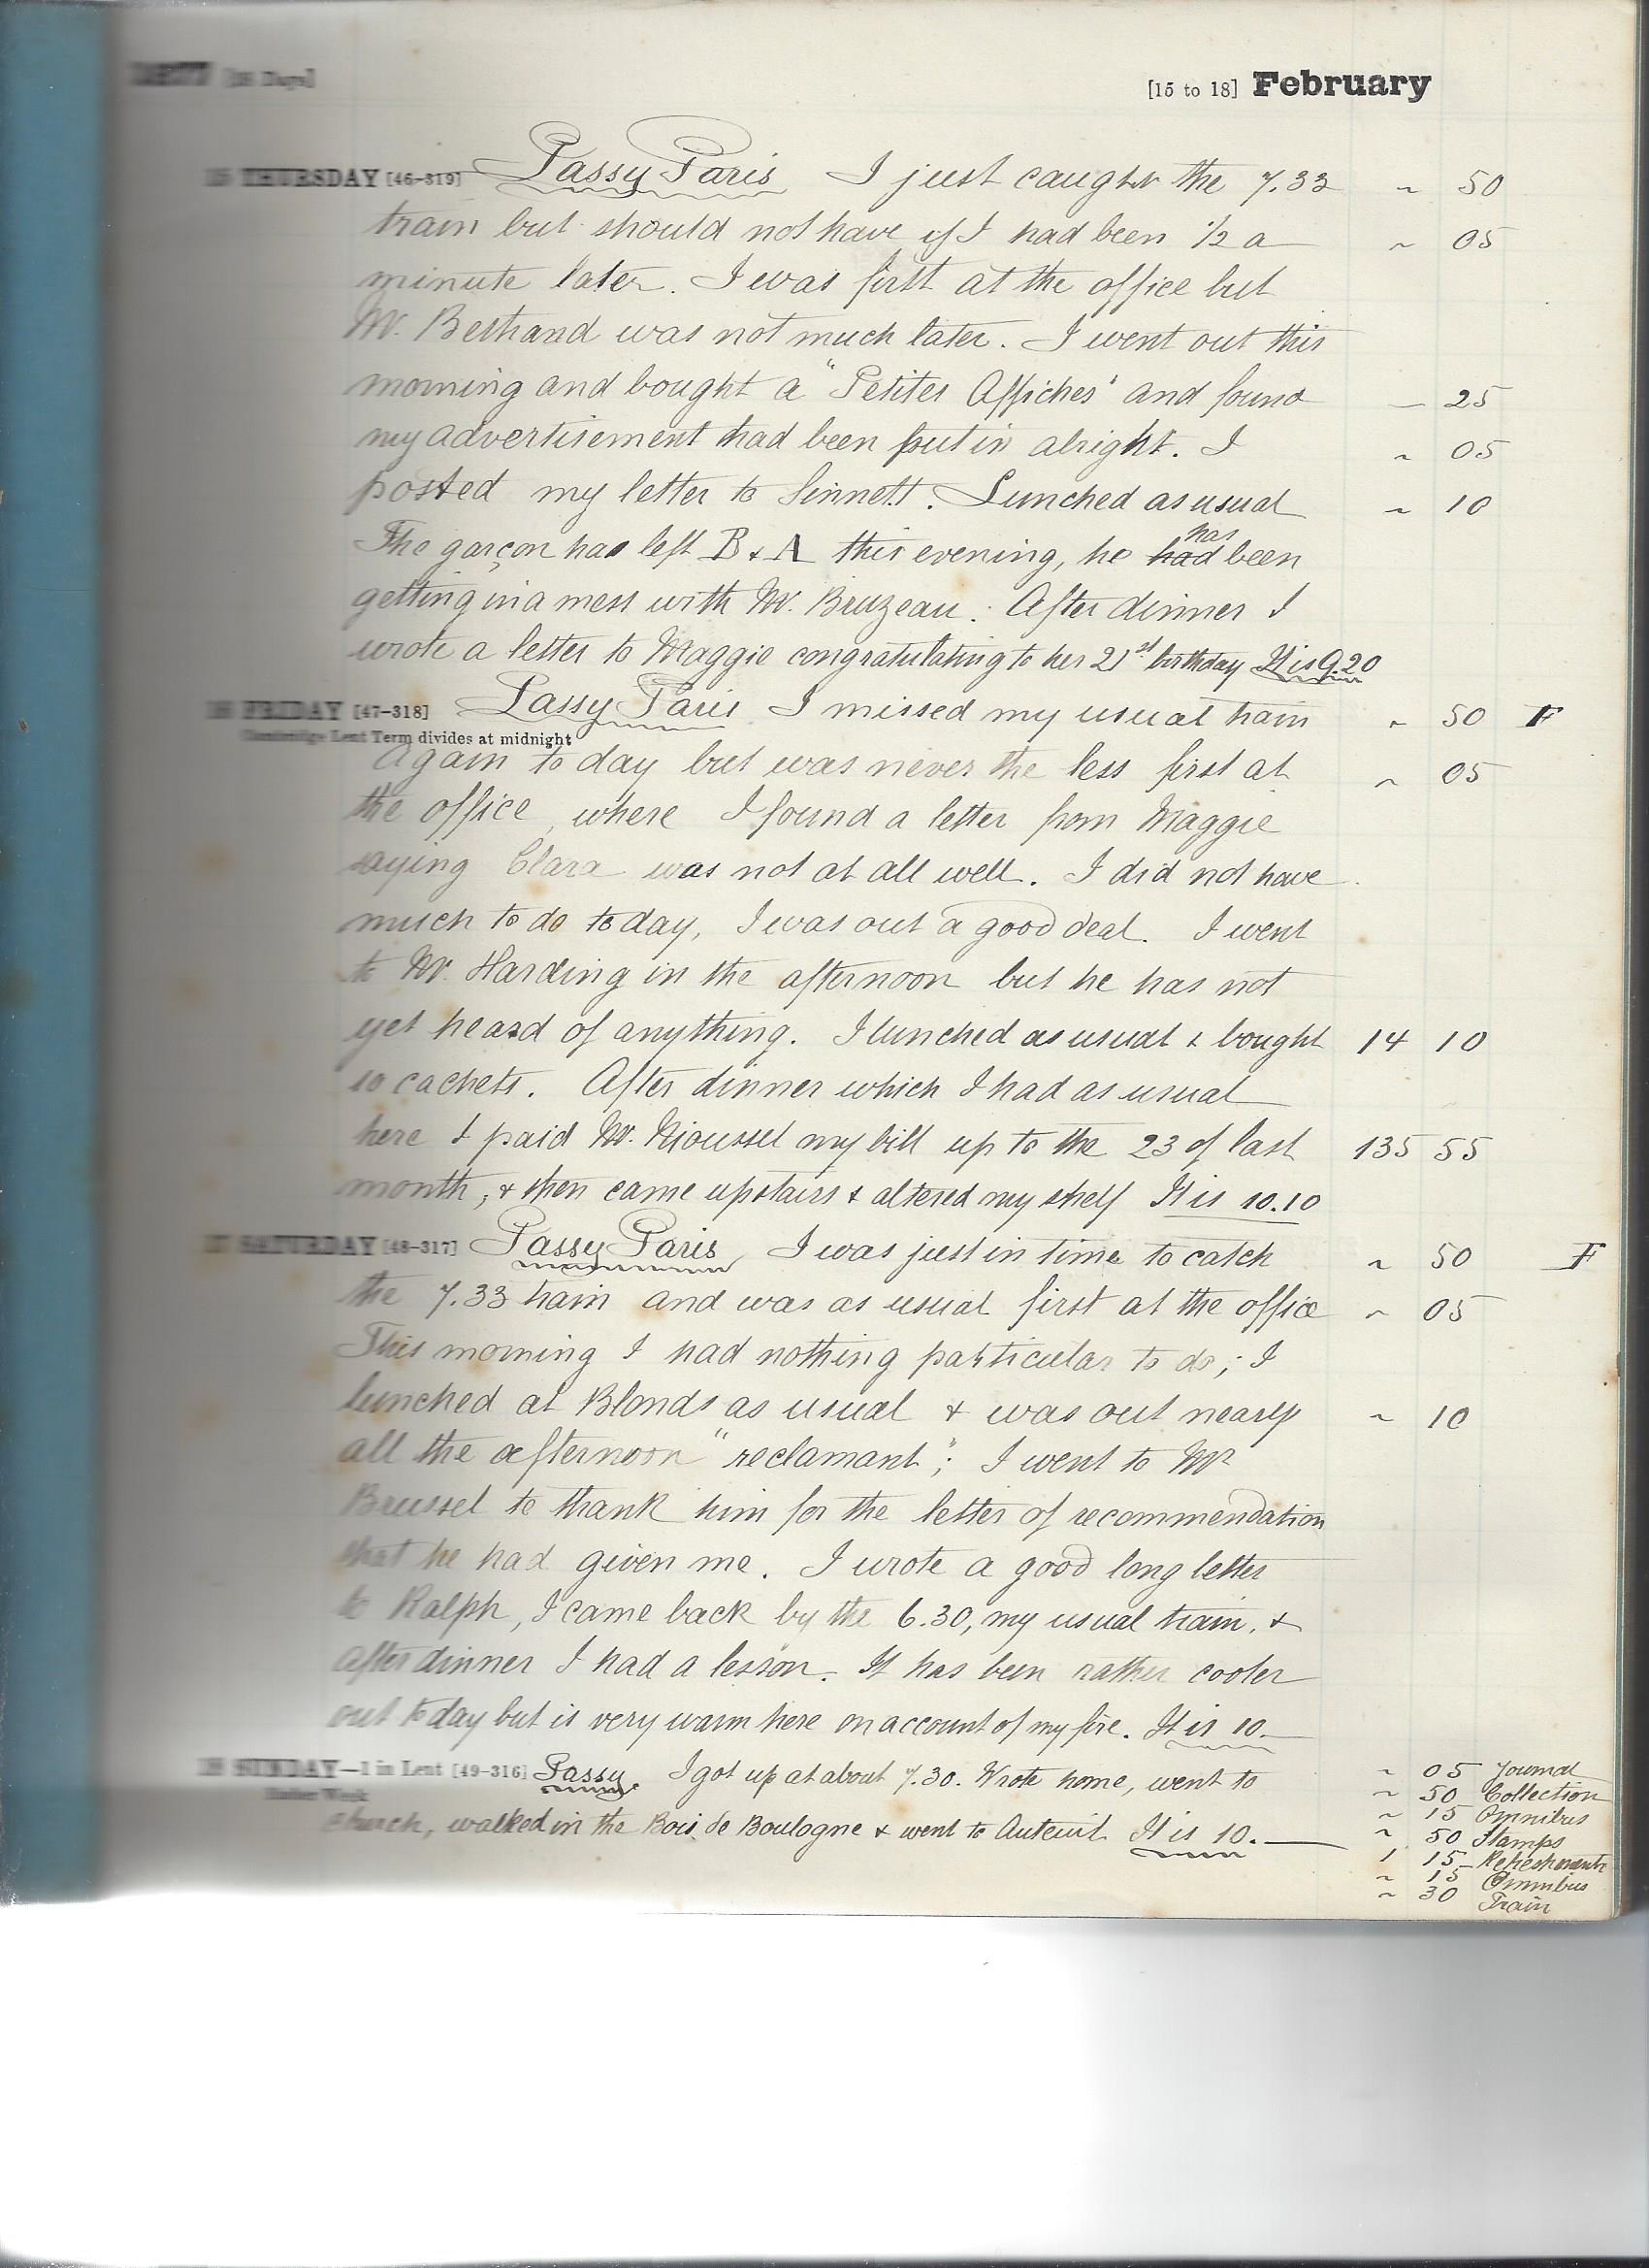 1877 [28 Days] [15 to 18] February
15 THURSDAY [46-319] Passy Paris I just caught the 7.33 ~ 50
train but should not have if I had been ½ a ~ 05
minute later. I was first at the office but
Mr. Bertrand was not much later. I went out this
morning and bought a "Petites Affiches" and found — 25
my advertisement had been put in alright. I ~ 05
posted my letter to Sinnett. Lunched as usual ~ 10
The garçon has left B & A this evening, he had has been
getting in a mess with Mr. Bruzeau. After dinner I
wrote a letter to Maggie congratulating to her 21st birthday It is 9.20
16 FRIDAY [47-318] Passy Paris I missed my usual train ~ 50 F
Cambridge Lent Term divides at midnight
again to day but was never the less first at ~ 05
the office, where I found a letter from Maggie
saying Clara was not at all well. I did not have
much to do to day, I was out a good deal. I went
to Mr. Harding in the afternoon but he has not
yet heard of anything. I lunched as usual & bought 14 10
10 cachets. After dinner which I had as usual
here I paid Mr. Nioussel my bill up to the 23 of last 135 55
month, & then came upstairs & altered my shelf It is 10.10
17 SATURDAY [48-317] Passy Paris I was just in time to catch ~ 50 F
the 7.33 train and was as usual first at the office ~ 05
This morning I had nothing particular to do; I
lunched at Blonds as usual & was out nearly ~ 10
all the afternoon "reclamant"; I went to Mr
Brussel to thank him for the letter of recommendation
that he had given me. I wrote a good long letter
to Ralph, I came back by the 6.30, my usual train, &
after dinner I had a lesson. It has been rather cooler
out to day but is very warm here on account of my fire. It is 10.—
18 SUNDAY—1 in Lent [49-316] Passy. I got up at about 7.30. Wrote home, went to ~ 05 Journal
Ember Week ~ 50 Collection
church, walked in the Bois de Boulogne & went to Auteuil It is 10.— ~ 15 Omnibus
~ 50 Stamps
1 15 Refreshments
~ 15 Omnibus
~ 30 Train